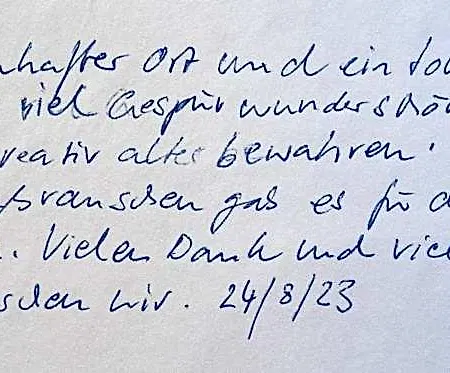 nhafter Ort und ein to
viel Gespür wunderschö
reativ altes bewahren.
gab es für d
. Vielen Dank und vie
wir. 24/8/23